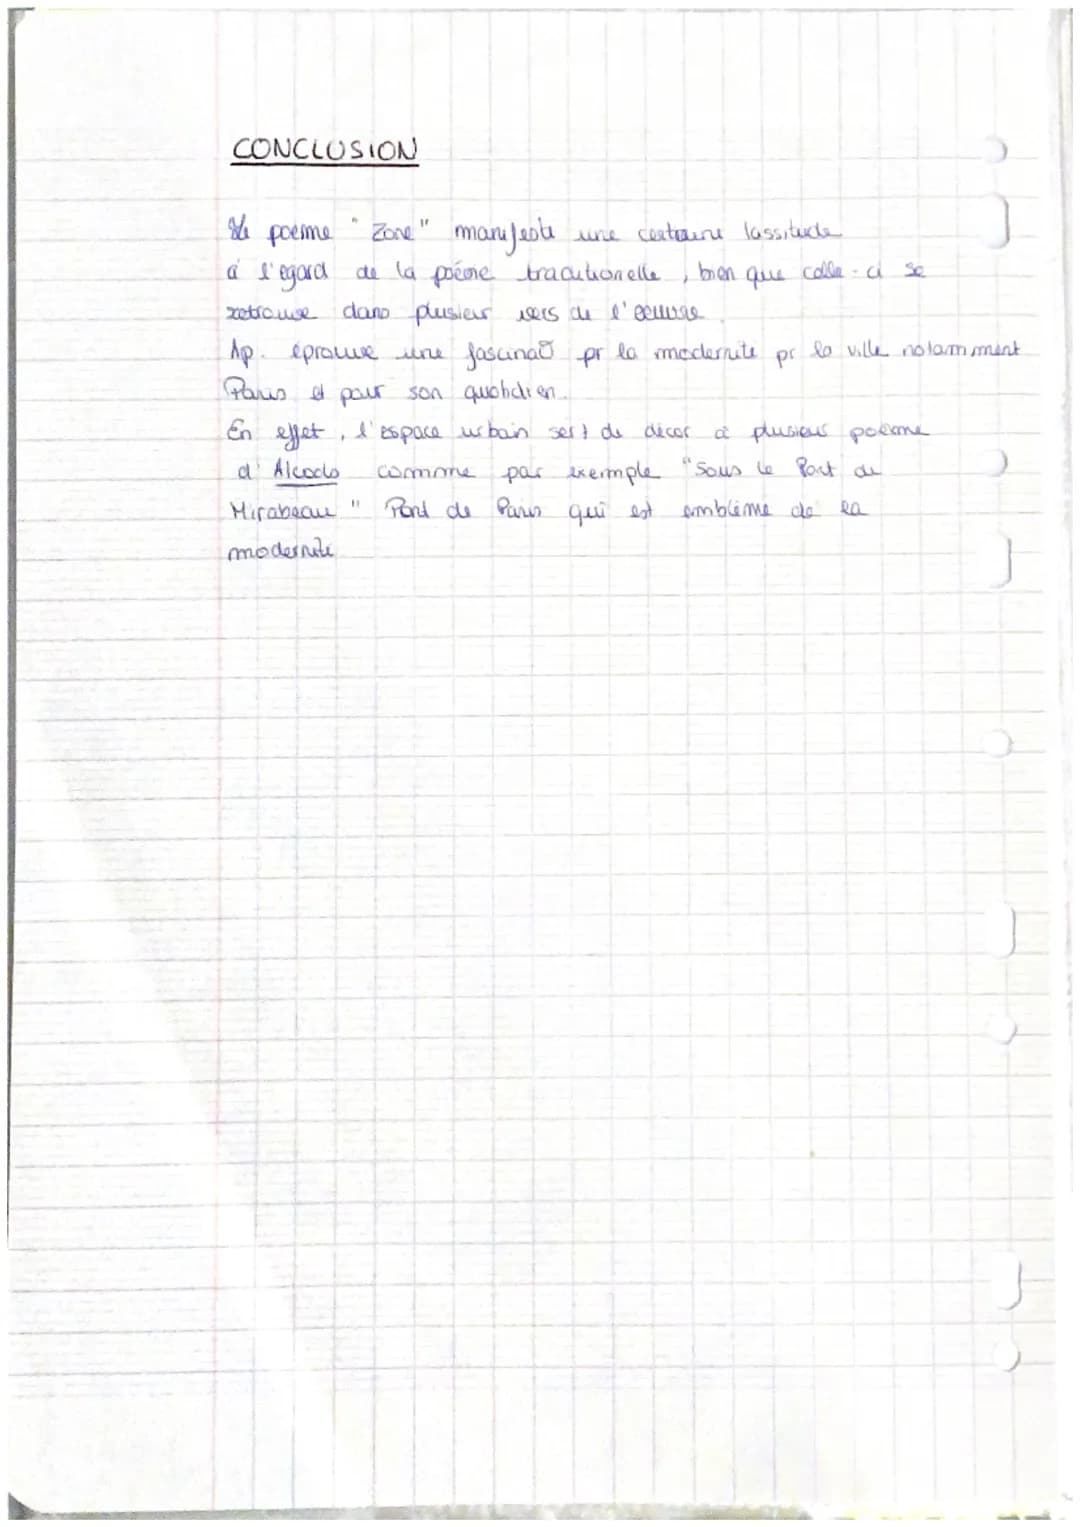 CONCLUSION
Le poeme "Zone" manifeste une certaine lassitude
à l'egard de la poésie traditionelle, bien que celle-ci se
retrouve dans plusieur vers de l'oeuvre.
Ap. éprouve une fascinaO pr la modernite pr la ville notamment
Paris et pour son quotidien.
En effet, l'espace urbain sert de décor à plusieurs poème
d'Alcools comme par exemple "Sous le Pont de
Mirabeau" Pont de Paris qui est emblème de la
modernite